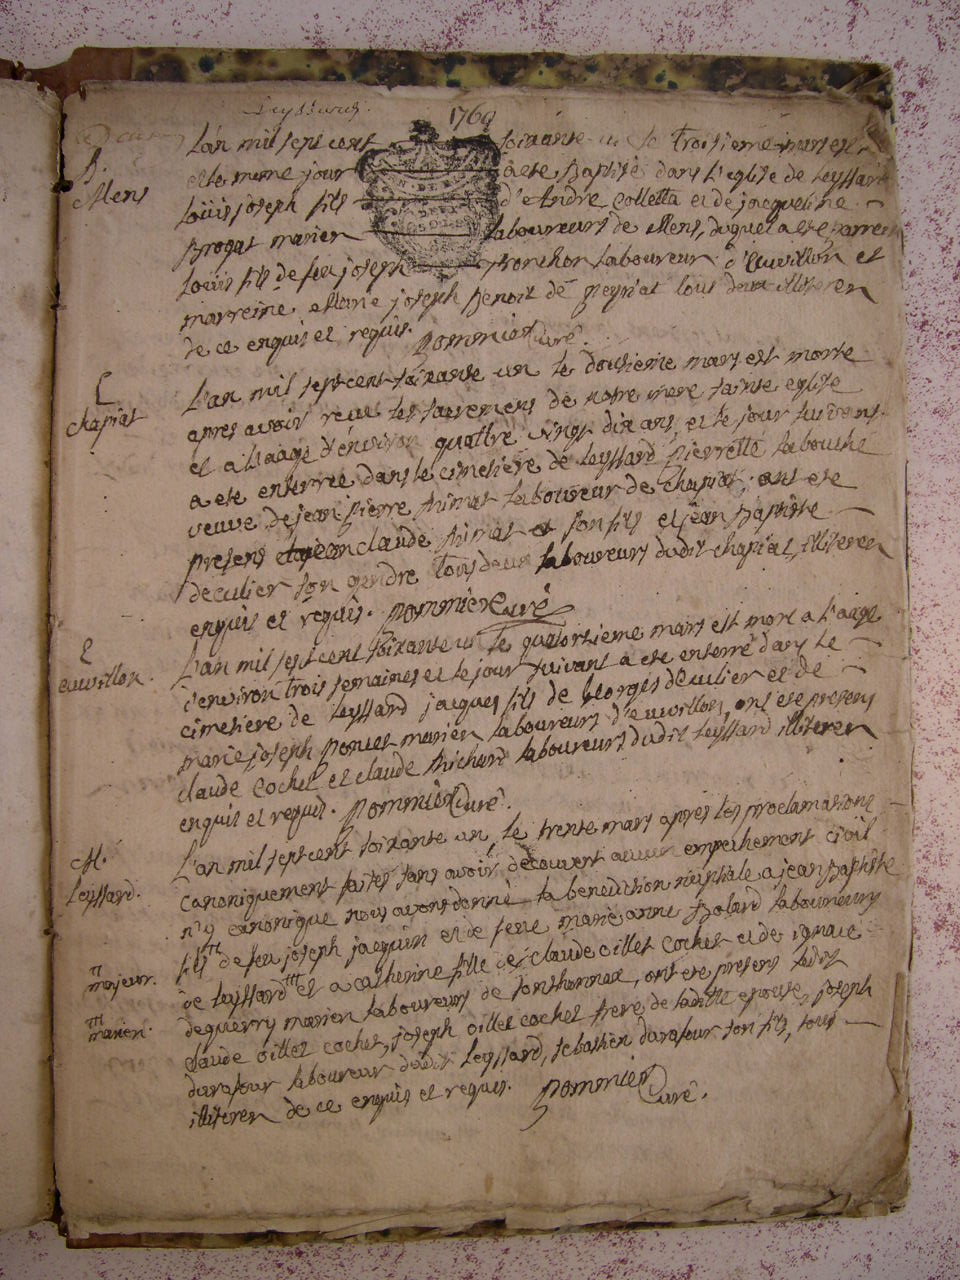 Leyssard.
1769
B.
Mens
L'an mil sept cent soixante un le troisieme mars est né
et le meme jour a ete Baptisé dans l'eglise de Leyssard
Loüis joseph fils d'Andre Colletta et de jacqueline
Brogat mariez laboureurs de Mens, duquel a ete parrein
Loüis fils de feu joseph tronchon laboureur d'Euvillon et
marreine Marie joseph Benoit de peyriat tous deux illiteren
de ce enquis et requis. Pommier Curé.
E
chapiat
L'an mil sept cent soixante un le dousieme mars est morte
apres avoir reçu les sacremens de notre mere sainte eglise
et a l'aage d'environ quattre vingt dix ans, et le jour suivent
a ete enterrée dans le cimetiére de Leyssard pierrette labouche
veuve de jean pierre thimat laboureur de chapiat, ont ete
presens claude thimat son fils et jean Baptiste
deculier son gendre tous deux laboureurs dudit chapiat, illiteren
enquis et requis. Pommier Curé
E
euvillon.
L'an mil sept cent soixante un le quatorsieme mars est mort a l'aage
d'environ trois semaines et le jour suivant a ete enterré dans le
cimetiere de Leyssard jacques fils de georges deculier et de
marie joseph ponset mariez laboureurs d'euvillon, ont ete presens
claude Cochet et claude thichard laboureurs dudit Leyssard illiteren
enquis et requis. Pommier Curé.
M.
Leyssard.
L'an mil sept cent soixante un, le trente mars apres les proclamations
canoniquement faites sans avoir decouvert aucun empechement civil
n'y canonique nous avons donné la benediction nuptiale a jean Baptiste
fils de feu joseph jacquin et de feue marie anne Bolard laboureurs
majeur.
de Leyssard et a catherine fille de claude oillet cochet et de ignace
mariez.
deguerry mariez laboureurs de sonthonnax, ont ete presens ledit
claude oillet cochet, joseph oillet cochet frere de ladite epouse, joseph
durafour laboureur dudit Leyssard, sebastien durafour son fils, tous
illiteren de ce enquis et requis. Pommier Curé.